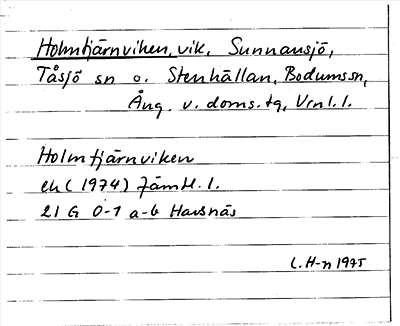 Holmtjärnviken, vik, Sunnansjö,
Tåsjö sn o. Stenhällan, Bodums sn,
Ång. v. doms. tg, Vrnl. l.
Holmtjärnviken
ek (1974) Jämtl. l.
21 G 0-1 a-b Havsnäs
L. H-n 1975